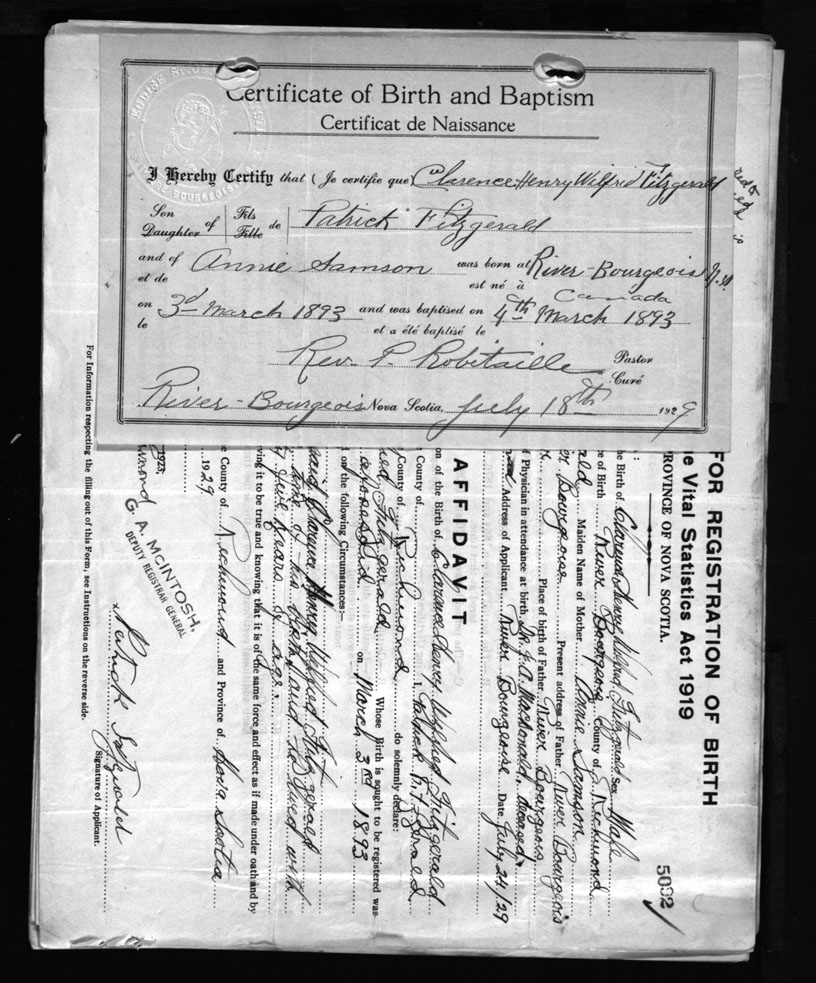 Certificate of Birth and Baptism
Certificat de Naissance
I Hereby Certify that (Je certifie que) Clarence Henry Wilfrid Fitzgerald
Son Daughter of Fils Fille de Patrick Fitzgerald
and of et de Annie Samson was born at est né à River-Bourgeois N.S.
Canada
on le 3d March 1893 and was baptised on et a été baptisé le 4th March 1893
Rev. P. Robitaille Pastor Curé
River-Bourgeois Nova Scotia, July 18th 1929
FOR REGISTRATION OF BIRTH
e Vital Statistics Act 1919
PROVINCE OF NOVA SCOTIA.
5092
e Birth of Clarence Henry Wilfred Fitzgerald Sex Male
e of Birth River Bourgeois County of Richmond
ald Maiden Name of Mother Annie Samson
er Bourgeois Present address of Father River Bourgeois
Place of birth of Father River Bourgeois
f Physician in attendance at birth Dr. F. A. Macdonald, deceased
Address of Applicant River Bourgeois Date July 24/29
AFFIDAVIT
on of the Birth of Clarence Henry Wilfred Fitzgerald
County of I, Patrick Fitzgerald
County of Richmond do solemnly declare:
ed Fitzgerald Whose Birth is sought to be registered was
on March 3rd 1893
on the following Circumstances:—
said Clarence Henry Wilfred Fitzgerald
time of his birth and he lived with
five years of age.
ving it to be true and knowing that it is of the same force and effect as if made under oath and by
e County of Richmond and Province of Nova Scotia
1929
1923,
G. A. McINTOSH.
DEPUTY REGISTRAR GENERAL
x Patrick Fitzgerald
Signature of Applicant.
For Information respecting the filling out of this Form, see Instructions on the reverse side.